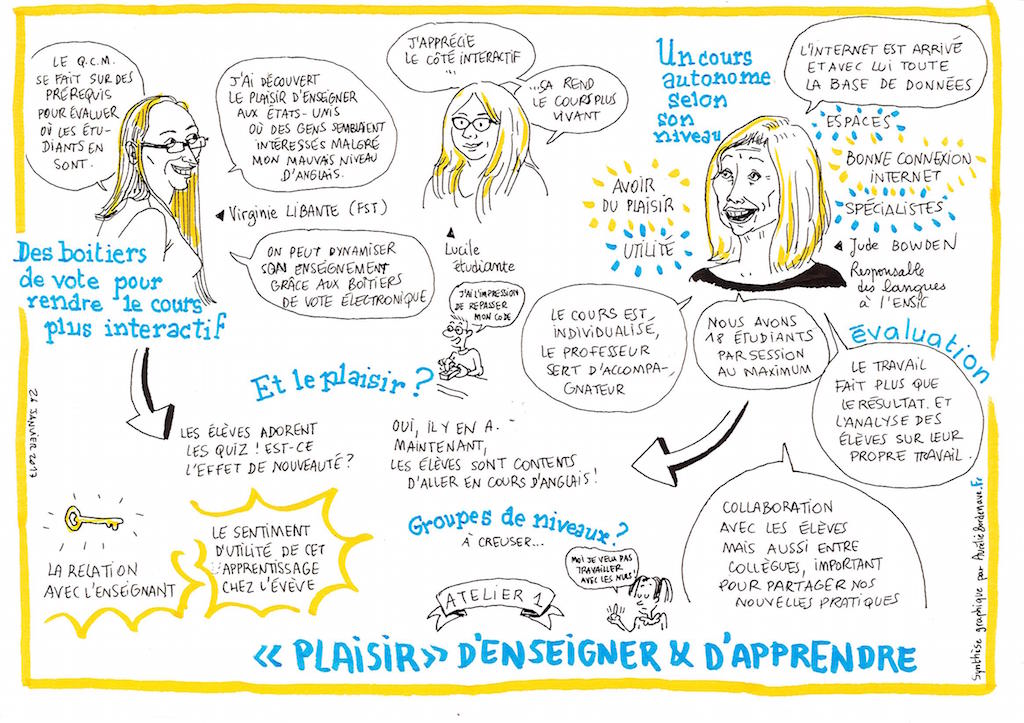 LE Q.C.M.
SE FAIT SUR DES
PRÉREQUIS
POUR ÉVALUER
OÙ LES ÉTU-
DIANTS EN
SONT.
J'AI DÉCOUVERT
LE PLAISIR D'ENSEIGNER
AUX ÉTATS-UNIS
OÙ DES GENS SEMBLAIENT
INTÉRESSÉS MALGRÉ
MON MAUVAIS NIVEAU
D'ANGLAIS.
Virginie LIBANTE (FST)
ON PEUT DYNAMISER
SON ENSEIGNEMENT
GRÂCE AUX BOÎTIERS
DE VOTE ÉLECTRONIQUE
Des boitiers
de vote pour
rendre le cours
plus interactif
J'APPRÉCIE
LE CÔTÉ INTERACTIF
...
...ÇA REND
LE COURS PLUS
VIVANT
Lucile
étudiante
J'AI L'IMPRESSION
DE REPASSER
MON CODE
Un cours
autonome
selon
son
niveau
L'INTERNET EST ARRIVÉ
ET AVEC LUI TOUTE
LA BASE DE DONNÉES
ESPACES
BONNE CONNEXION
INTERNET
SPÉCIALISTES
AVOIR
DU PLAISIR
UTILITÉ
Jude BOWDEN
Responsable
des langues
à l'ENSIC
LE COURS EST
INDIVIDUALISÉ,
LE PROFESSEUR
SERT D'ACCOMPA-
GNATEUR
NOUS AVONS
18 ÉTUDIANTS
PAR SESSION
AU MAXIMUM
évaluation
LE TRAVAIL
FAIT PLUS QUE
LE RÉSULTAT. ET
L'ANALYSE DES
ÉLÈVES SUR LEUR
PROPRE TRAVAIL.
Et le plaisir?
LES ÉLÈVES ADORENT
LES QUIZ ! EST-CE
L'EFFET DE NOUVEAUTÉ ?
OUI, IL Y EN A.
MAINTENANT,
LES ÉLÈVES SONT CONTENTS
D'ALLER EN COURS D'ANGLAIS !
LA RELATION
AVEC L'ENSEIGNANT
LE SENTIMENT
D'UTILITÉ DE CET
APPRENTISSAGE
CHEZ L'ÉVÈVE
Groupes de niveaux?
À CREUSER...
MOI JE VEUX PAS
TRAVAILLER
AVEC LES NULS!
COLLABORATION
AVEC LES ÉLÈVES
MAIS AUSSI ENTRE
COLLÈGUES, IMPORTANT
POUR PARTAGER NOS
NOUVELLES PRATIQUES
ATELIER 1
« PLAISIR » D'ENSEIGNER & D'APPRENDRE
Synthèse graphique par AurélieBordenave.Fr